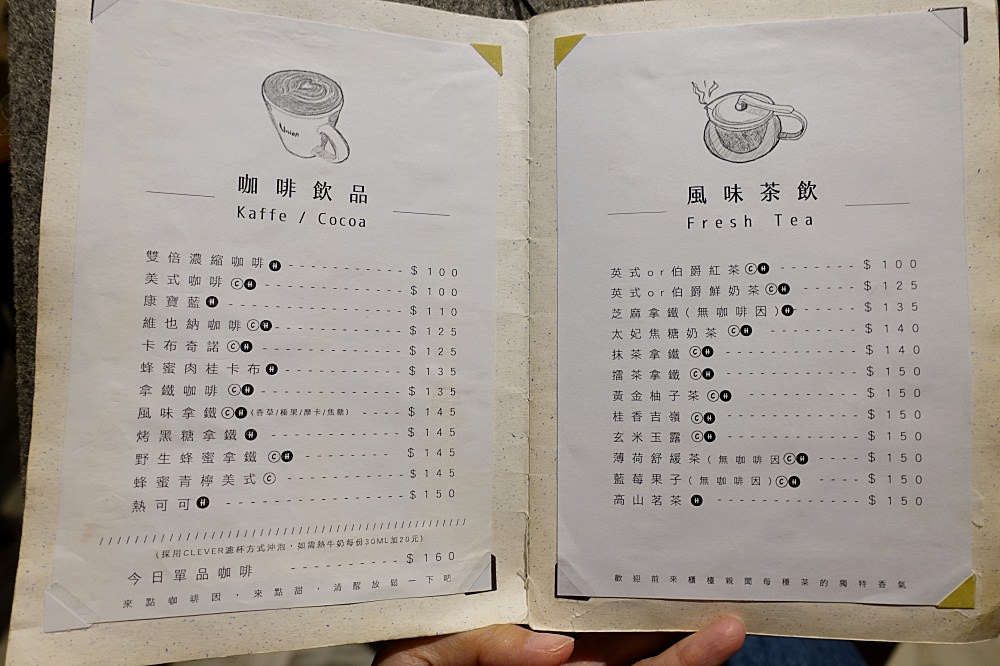 Union
咖啡飲品
Kaffe / Cocoa
雙倍濃縮咖啡 H ----------- $100
美式咖啡 C H ----------- $100
康寶藍 H ----------- $110
維也納咖啡 C H ----------- $125
卡布奇諾 C H ----------- $125
蜂蜜肉桂卡布 H ----------- $135
拿鐵咖啡 C H ----------- $135
風味拿鐵 C H (香草/榛果/摩卡/焦糖) ----- $145
烤黑糖拿鐵 H ----------- $145
野生蜂蜜拿鐵 C H ----------- $145
蜂蜜青檸美式 C ----------- $145
熱可可 H ----------- $150
(採用CLEVER濾杯方式沖泡,如需熱牛奶每份30ML加20元)
今日單品咖啡 ----------- $160
來點咖啡因,來點甜,清醒放鬆一下吧
風味茶飲
Fresh Tea
英式or伯爵紅茶 C H ------- $100
英式or伯爵鮮奶茶 C H ------ $125
芝麻拿鐵(無咖啡因) H ------ $135
太妃焦糖奶茶 C H -------- $140
抹茶拿鐵 C H ----------- $140
擂茶拿鐵 C H ----------- $150
黃金柚子茶 C H ---------- $150
桂香吉嶺 C H ----------- $150
玄米玉露 C H ----------- $150
薄荷舒緩茶(無咖啡因 C H ---- $150
藍莓果子(無咖啡因) C H ---- $150
高山茗茶 H ------------ $150
歡迎前來櫃檯親聞每種茶的獨特香氣